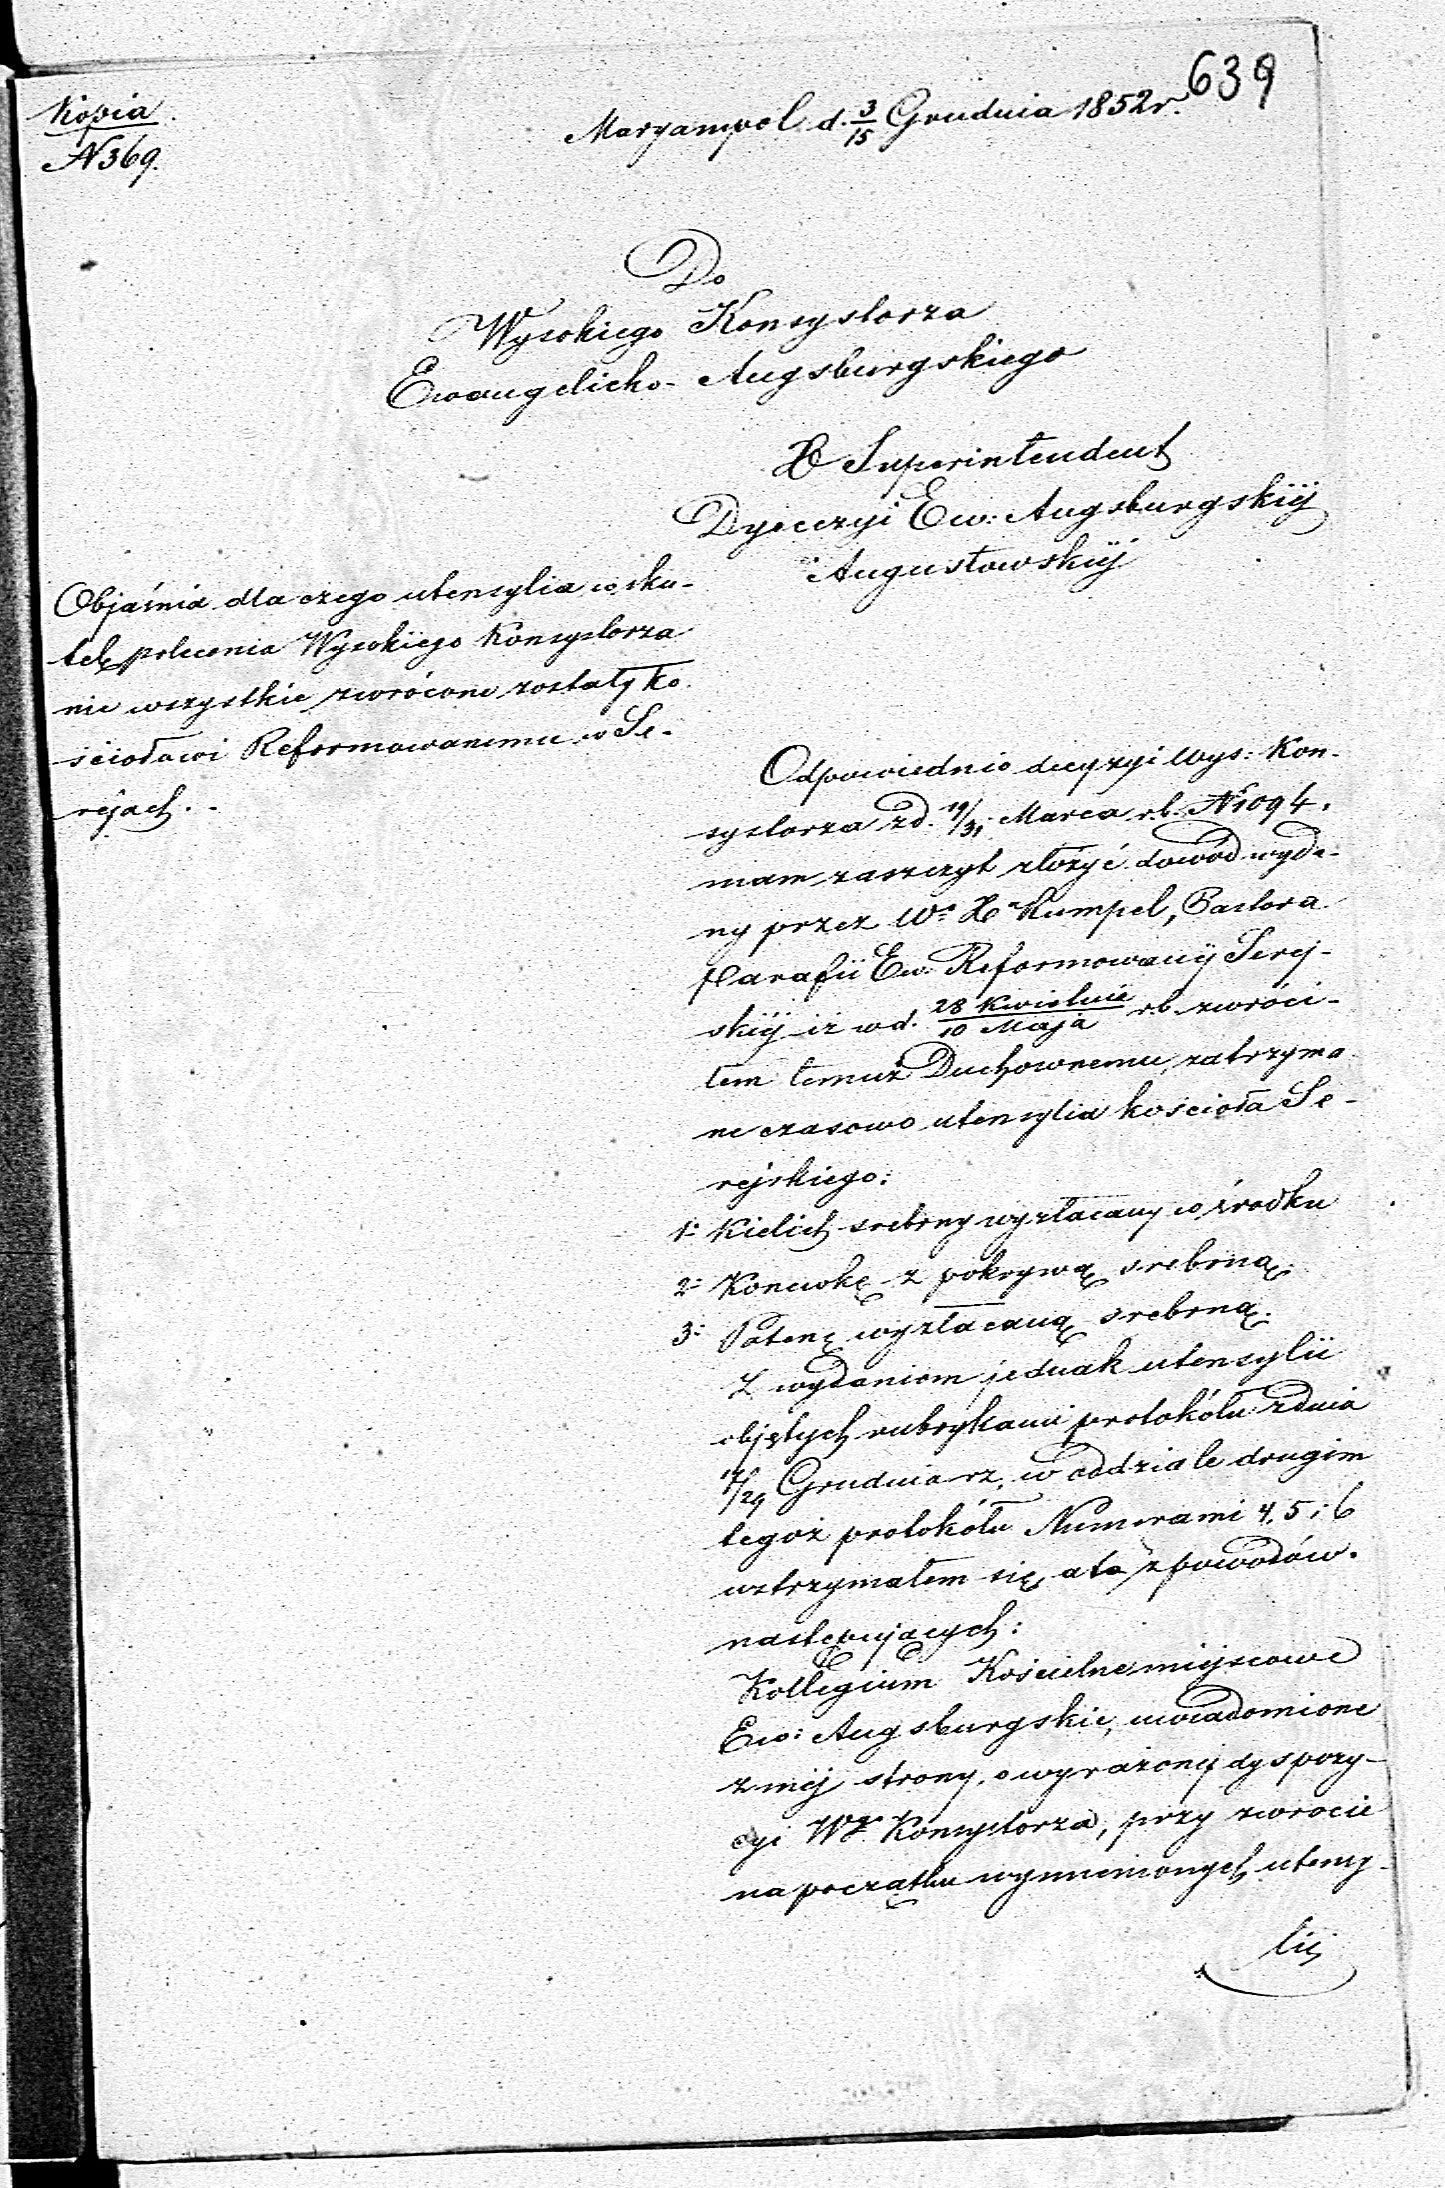 639
Kopia.
N 369.
Maryampol d. 3/15 Grudnia 1852 r.
Do
Wysokiego Konsystorza
Ewangelicko-Augsburgskiego
X Superintendent
Dyecezyi Ew: Augsburgskiéj
Augustowskiéj
Objaśnia dla czego utensylia w sku-
tek polecenia Wysokiego Konsystorza
nie wszystkie zwrócone zostały Ko-
ściołowi Reformowanemu w Se-
rejach.
Odpowiednio decyzyi Wys: Kon-
systorza z d. 19/31 Marca r.b. N 1094.
mam zaszczyt złożyć dowód wyda-
ny przez Wo X Kumpel, Pastora
Parafii Ew: Reformowanéj Serej-
skiéj iż w d. 28 Kwietnia/10 Maja r.b. zwróci-
łem temuż Duchownemu, zatrzyma-
ne czasowo utensylia kościoła Se-
rejskiego:
1: Kielich srebrny wyzłacany w środku
2: Konewkę z pokrywą srebrną.
3: Patenę wyzłacaną srebrną.
Z wydaniem jednak utensylii
objętych rubrykami protokółu z dnia
17/29 Grudnia rz. w oddziale drugim
tegoż protokółu Numerami 4, 5 i 6
wstrzymałem się, a to z powodów
następujących:
Kollegium Kościelne miejscowe
Ew: Augsburgskie, uwiadomione
z méj strony, o wyrażonéj dyspozy-
cyi Wgo Konsystorza, przy zwrocie
na początku wymienionych utensy-
lii,